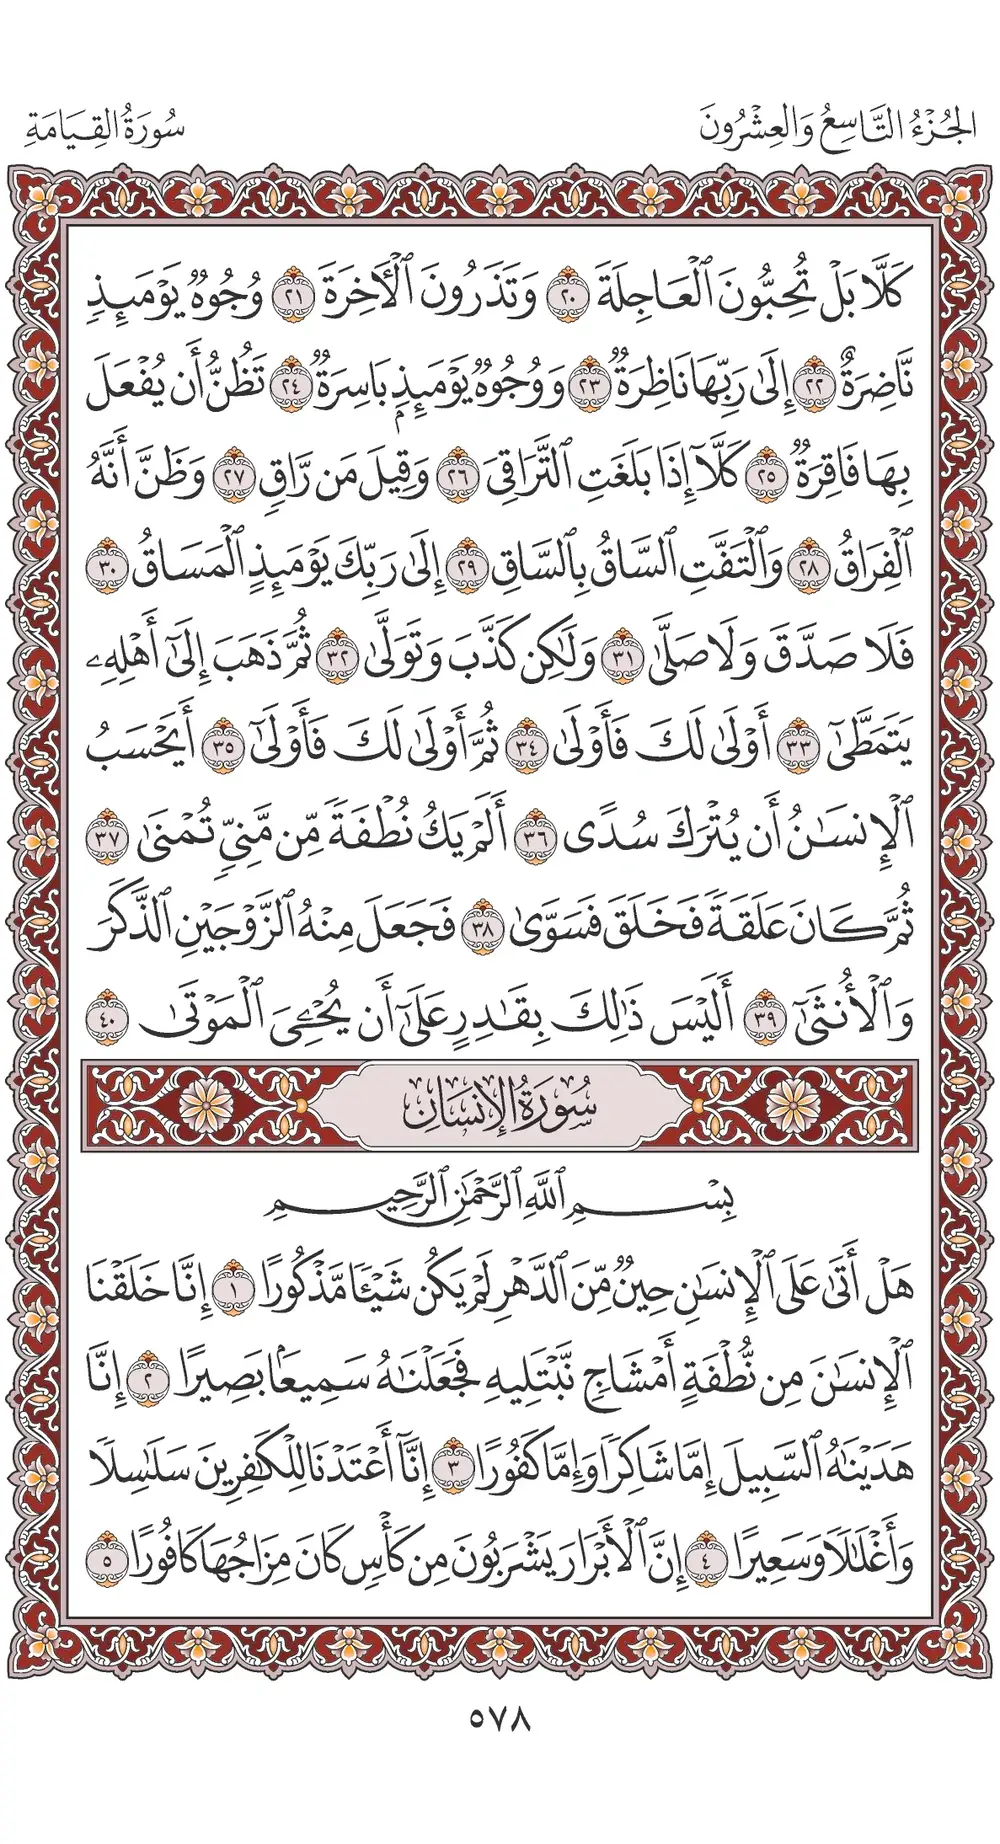 الجُزْءُ التَّاسِعُ وَالعِشْرُونَ
سُورَةُ القِيَامَةِ
كَلَّا بَلْ تُحِبُّونَ ٱلْعَاجِلَةَ ٢٠ وَتَذَرُونَ ٱلْأَخِرَةَ ٢١ وُجُوهٌ يَوْمَئِذٍ
نَّاضِرَةٌ ٢٢ إِلَىٰ رَبِّهَا نَاظِرَةٌ ٢٣ وَوُجُوهٌ يَوْمَئِذِۭ بَاسِرَةٌ ٢٤ تَظُنُّ أَن يُفْعَلَ
بِهَا فَاقِرَةٌ ٢٥ كَلَّآ إِذَا بَلَغَتِ ٱلتَّرَاقِىَ ٢٦ وَقِيلَ مَن رَّاقٍ ٢٧ وَظَنَّ أَنَّهُ
ٱلْفِرَاقُ ٢٨ وَٱلْتَفَّتِ ٱلسَّاقُ بِٱلسَّاقِ ٢٩ إِلَىٰ رَبِّكَ يَوْمَئِذٍ ٱلْمَسَاقُ ٣٠
فَلَا صَدَّقَ وَلَا صَلَّىٰ ٣١ وَلَـٰكِن كَذَّبَ وَتَوَلَّىٰ ٣٢ ثُمَّ ذَهَبَ إِلَىٰٓ أَهْلِهِۦ
يَتَمَطَّىٰٓ ٣٣ أَوْلَىٰ لَكَ فَأَوْلَىٰ ٣٤ ثُمَّ أَوْلَىٰ لَكَ فَأَوْلَىٰٓ ٣٥ أَيَحْسَبُ
ٱلْإِنسَـٰنُ أَن يُتْرَكَ سُدًى ٣٦ أَلَمْ يَكُ نُطْفَةً مِّن مَّنِىٍّ تُمْنَىٰ ٣٧
ثُمَّ كَانَ عَلَقَةً فَخَلَقَ فَسَوَّىٰ ٣٨ فَجَعَلَ مِنْهُ ٱلزَّوْجَيْنِ ٱلذَّكَرَ
وَٱلْأُنثَىٰٓ ٣٩ أَلَيْسَ ذَٰلِكَ بِقَـٰدِرٍ عَلَىٰٓ أَن يُحْـِۧىَ ٱلْمَوْتَىٰ ٤٠
سُورَةُ الإِنسَانِ
بِسْمِ ٱللَّهِ ٱلرَّحْمَـٰنِ ٱلرَّحِيمِ
هَلْ أَتَىٰ عَلَى ٱلْإِنسَـٰنِ حِينٌ مِّنَ ٱلدَّهْرِ لَمْ يَكُن شَيْـًٔا مَّذْكُورًا ١ إِنَّا خَلَقْنَا
ٱلْإِنسَـٰنَ مِن نُّطْفَةٍ أَمْشَاجٍ نَّبْتَلِيهِ فَجَعَلْنَـٰهُ سَمِيعَۢا بَصِيرًا ٢ إِنَّا
هَدَيْنَـٰهُ ٱلسَّبِيلَ إِمَّا شَاكِرًا وَإِمَّا كَفُورًا ٣ إِنَّآ أَعْتَدْنَا لِلْكَـٰفِرِينَ سَلَـٰسِلَا۟
وَأَغْلَـٰلًا وَسَعِيرًا ٤ إِنَّ ٱلْأَبْرَارَ يَشْرَبُونَ مِن كَأْسٍ كَانَ مِزَاجُهَا كَافُورًا ٥
٥٧٨